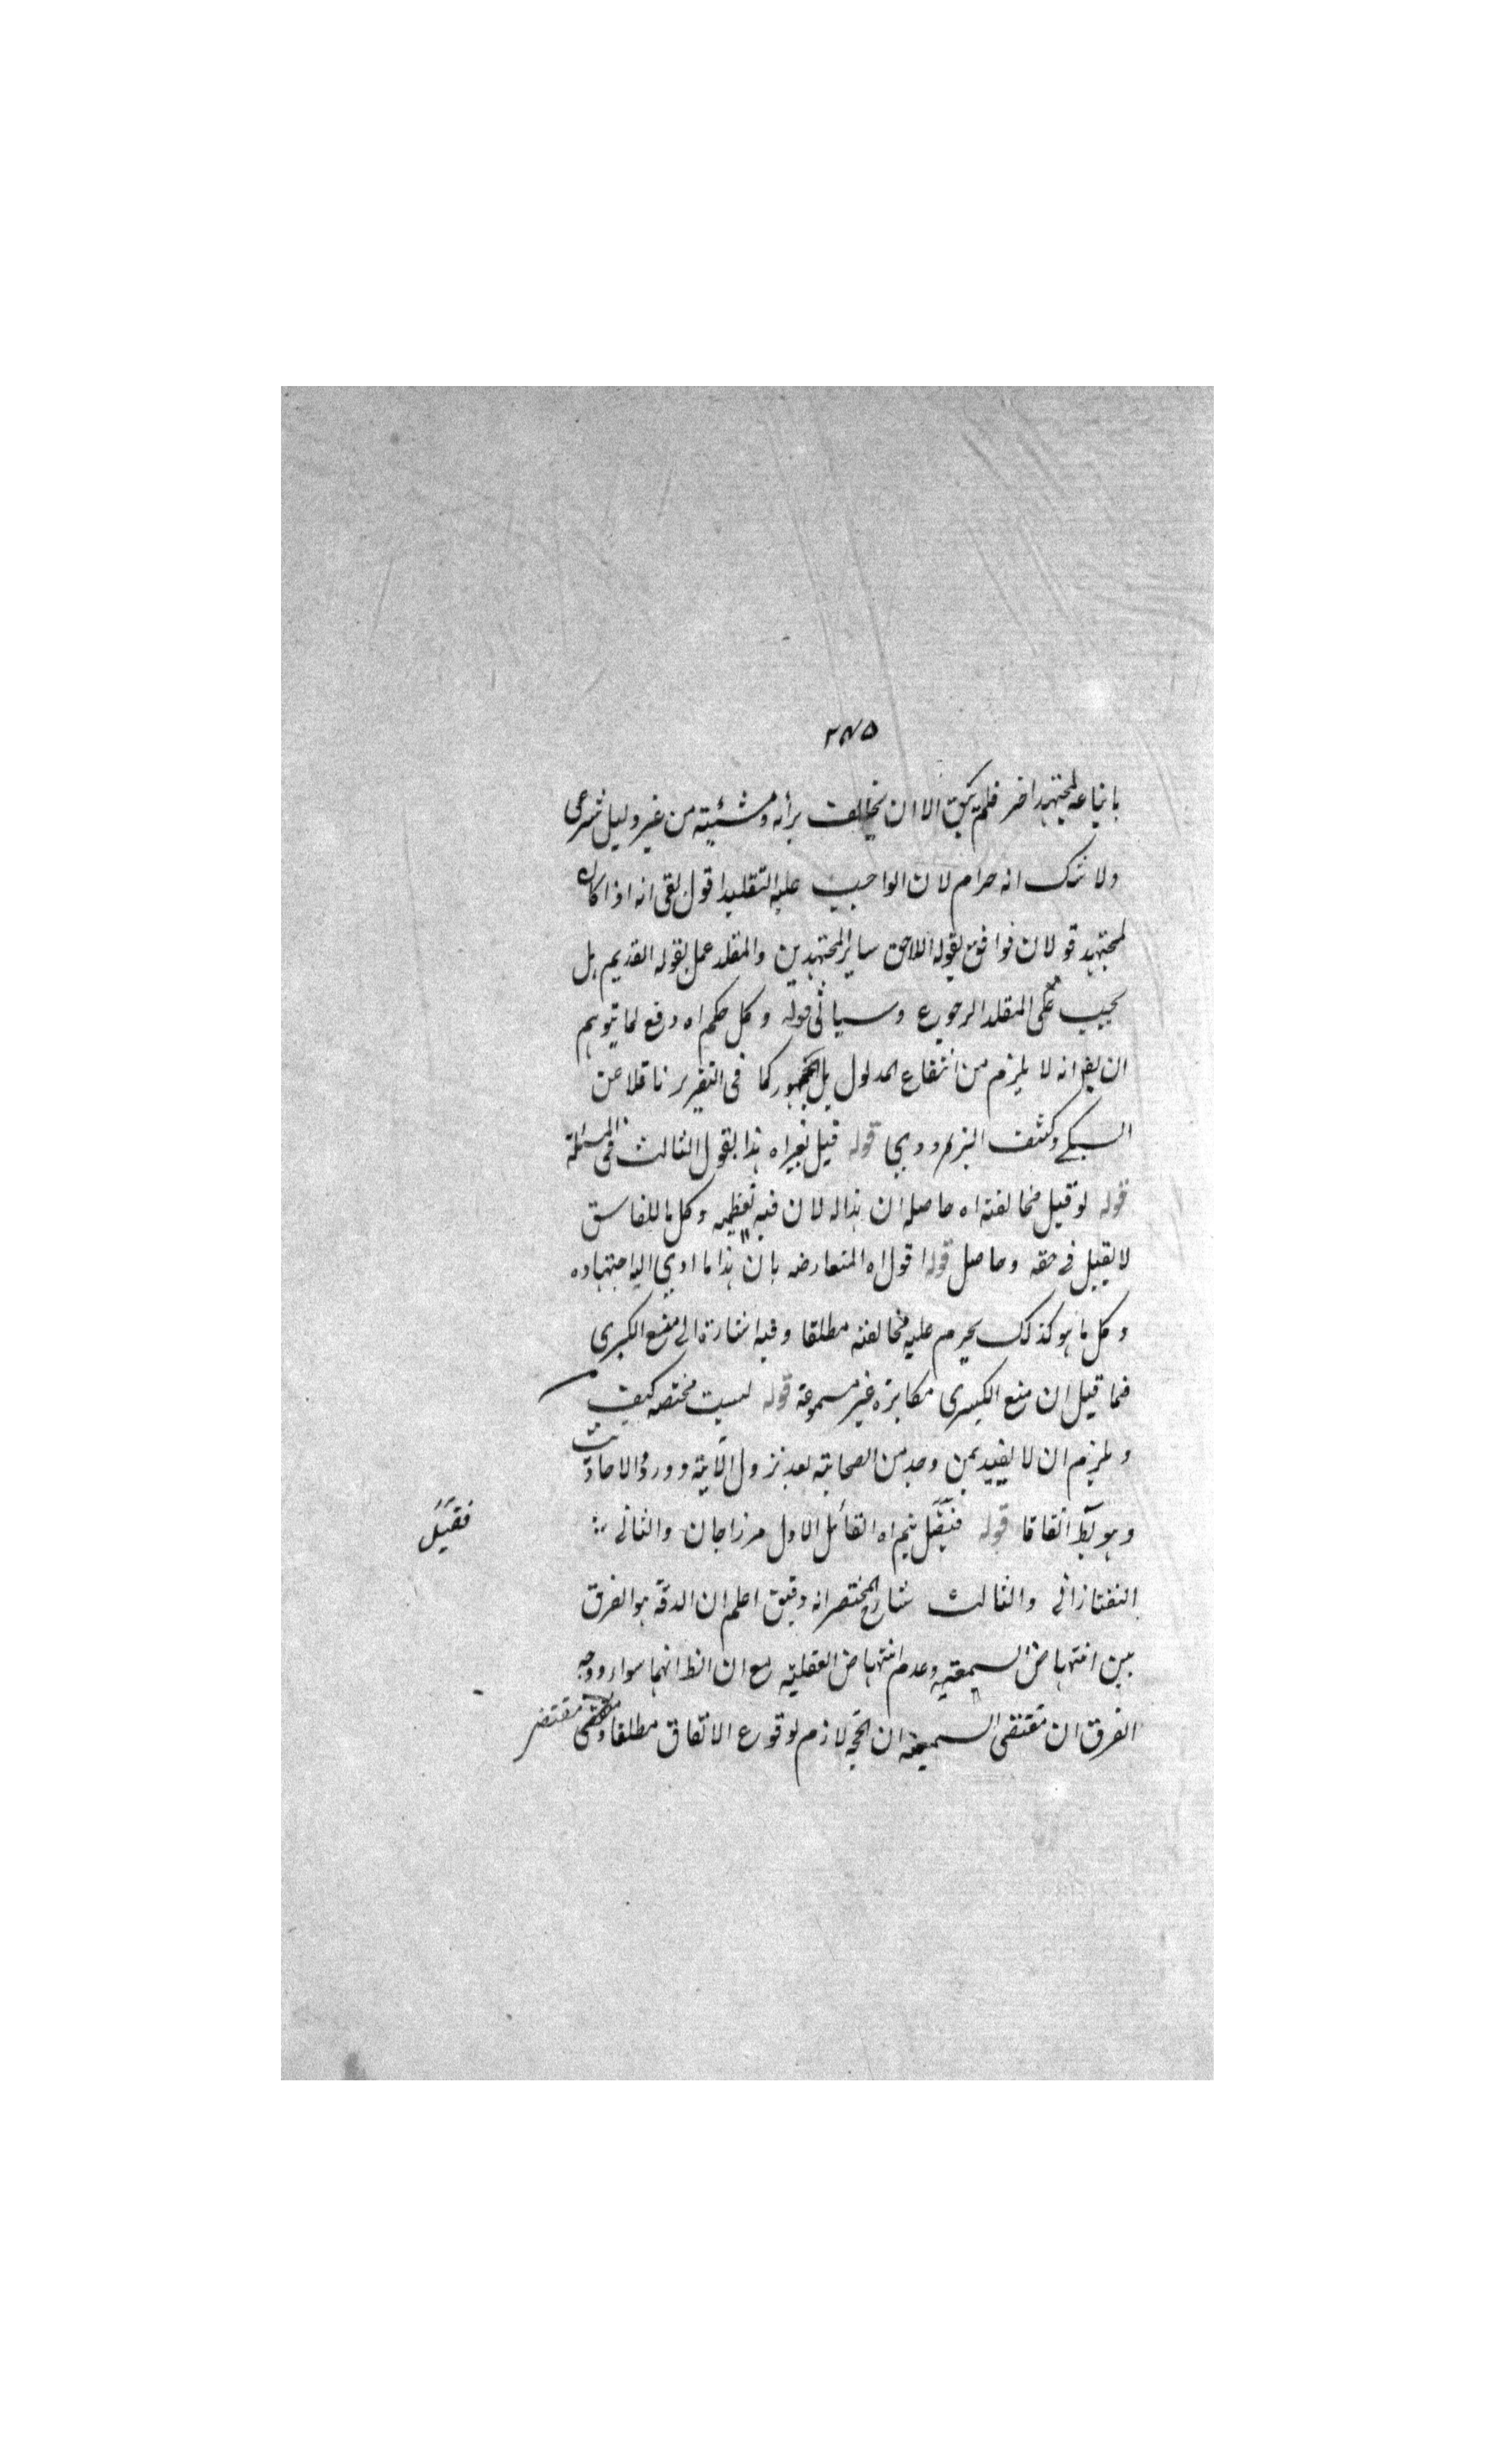 ٢٧٥
باتباعه لمجتهد اخر فلم يبق الا ان يخالف برأيه ومشيئته من غير دليل شرعى
ولا شك انه حرام لان الواجب عليه التقليد اقول بقى انه اذا كان
لمجتهد قولان فوافق بقوله اللاحق ساير المجتهدين والمقلد عمل بقوله القديم هل
يجب على المقلد الرجوع وسياتى قوله وكل حكم اه دفع لما يتوهم
ان يق انه لا يلزم من انتفاء المدلول بل الجمهور كما فى التقرير ناقلا عن
السبكے وكشف البزدوي قوله قيل نعم اه هذا القول الثالث فى المسئلة
قوله لو قيل مخالفته اه حاصله ان هذا له لان فيه تعظيمه وكل ما للفاسق
لا يقبل فے حقه وحاصل قوله اقول اه المعارضه بان هذا ما ادي اليه اجتهاده
وكل ما هو كذلك يحرم عليه مخالفته مطلقا وفيه اشارة الى منع الكبرى
فما قيل ان منع الكبرى مكابرة غير مسموعة قوله ليست مختصه كيف
ويلزم ان لا يفيد بمن وجد من الصحابة بعد نزول الآية وورود الاحاديث
وهو بط اتفاقا قوله فقيل نعم اه القائل الاول مرزاجان والثانے
فقيل
التفتازانى والثالث شارح المختصر انه دقيق اعلم ان الدقة هو الفرق
بين انتهاض السمعيه وعدم انتهاض العقليه مع ان الظ انهما سواء ووجه
الفرق ان مقتضى السمعيه ان الحجه لازم لوقوع الاتفاق مطلقا ومقتضى